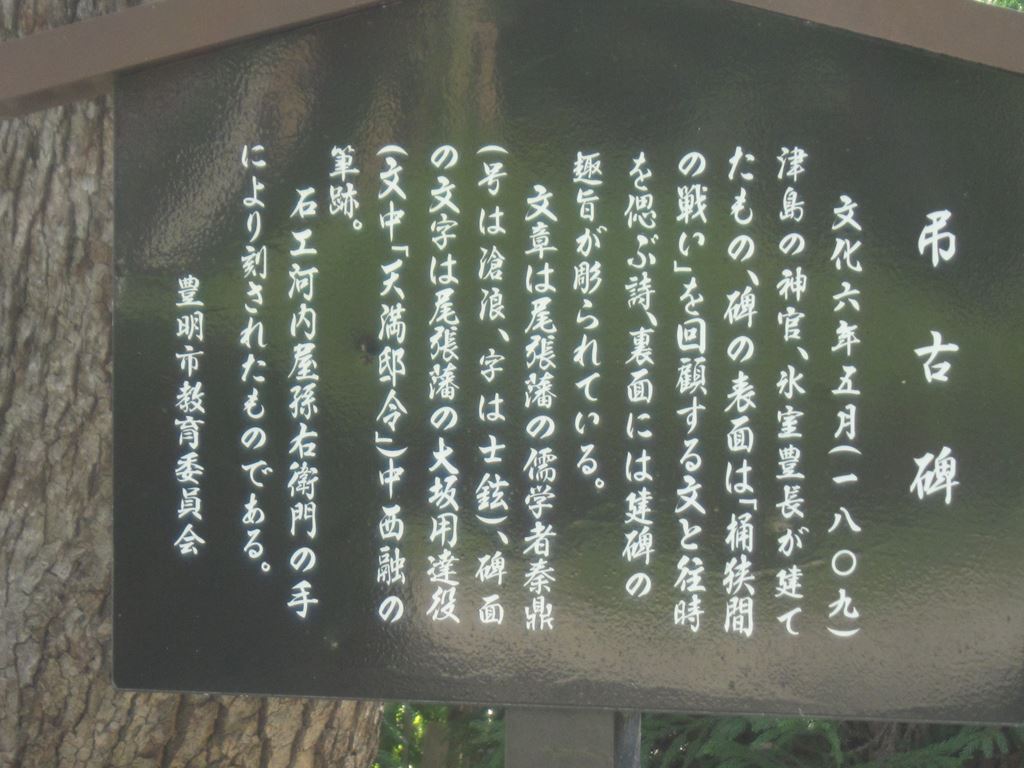 弔古碑
文化六年五月(一八〇九)
津島の神官、氷室豊長が建て
たもの、碑の表面は「桶狭間
の戦い」を回顧する文と往時
を偲ぶ詩、裏面には建碑の
趣旨が彫られている。
文章は尾張藩の儒学者秦鼎
(号は滄浪、字は士鉉)、碑面
の文字は尾張藩の大坂用達役
(文中「天満邸令」)中西融の
筆跡。
石工河内屋孫右衛門の手
により刻されたものである。
豊明市教育委員会